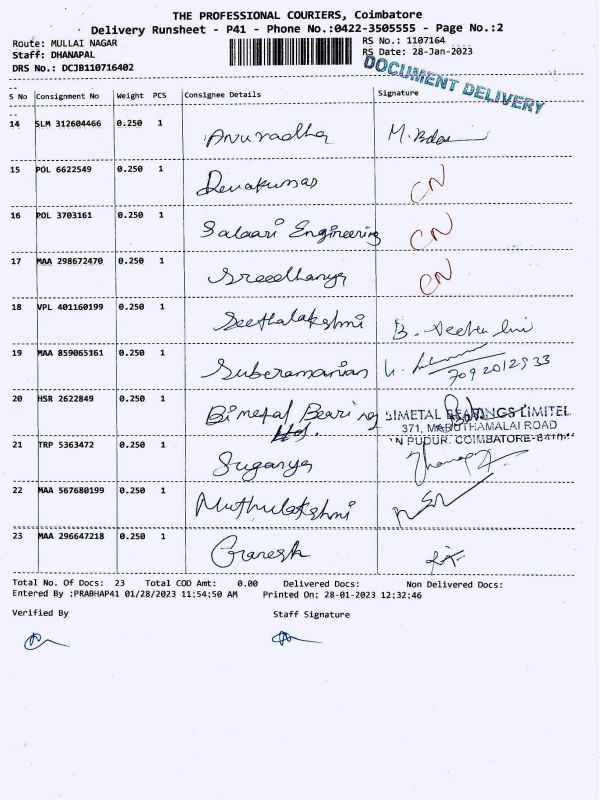 THE PROFESSIONAL COURIERS, Coimbatore
Delivery Runsheet - P41 - Phone No.:0422-3505555 - Page No.:2
Route: MULLAI NAGAR RS No.: 1107164
Staff: DHANAPAL RS Date: 28-Jan-2023
DRS No.: DCJB110716402
DOCUMENT DELIVERY
S No Consignment No Weight PCS Consignee Details Signature
14 SLM 312604466 0.250 1 Anuradha
15 POL 6622549 0.250 1 Devakumar CN
16 POL 3703161 0.250 1 Salaari Engineering CN
17 MAA 298672470 0.250 1 Sreedhanya CN
18 VPL 401160199 0.250 1 Seethalakshmi
19 MAA 859065161 0.250 1 Suberamanian
7092012933
20 HSR 2622849 0.250 1 Bimetal Bearing BIMETAL BEARINGS LIMITED
371, MARUTHAMALAI ROAD
N PUDUR. COIMBATORE-641041
21 TRP 5363472 0.250 1 Suganya
22 MAA 567680199 0.250 1 Muthulakshmi
23 MAA 296647218 0.250 1 Ganesh
Total No. Of Docs: 23 Total COD Amt: 0.00 Delivered Docs: Non Delivered Docs:
Entered By :PRABHAP41 01/28/2023 11:54:50 AM Printed On: 28-01-2023 12:32:46
Verified By Staff Signature